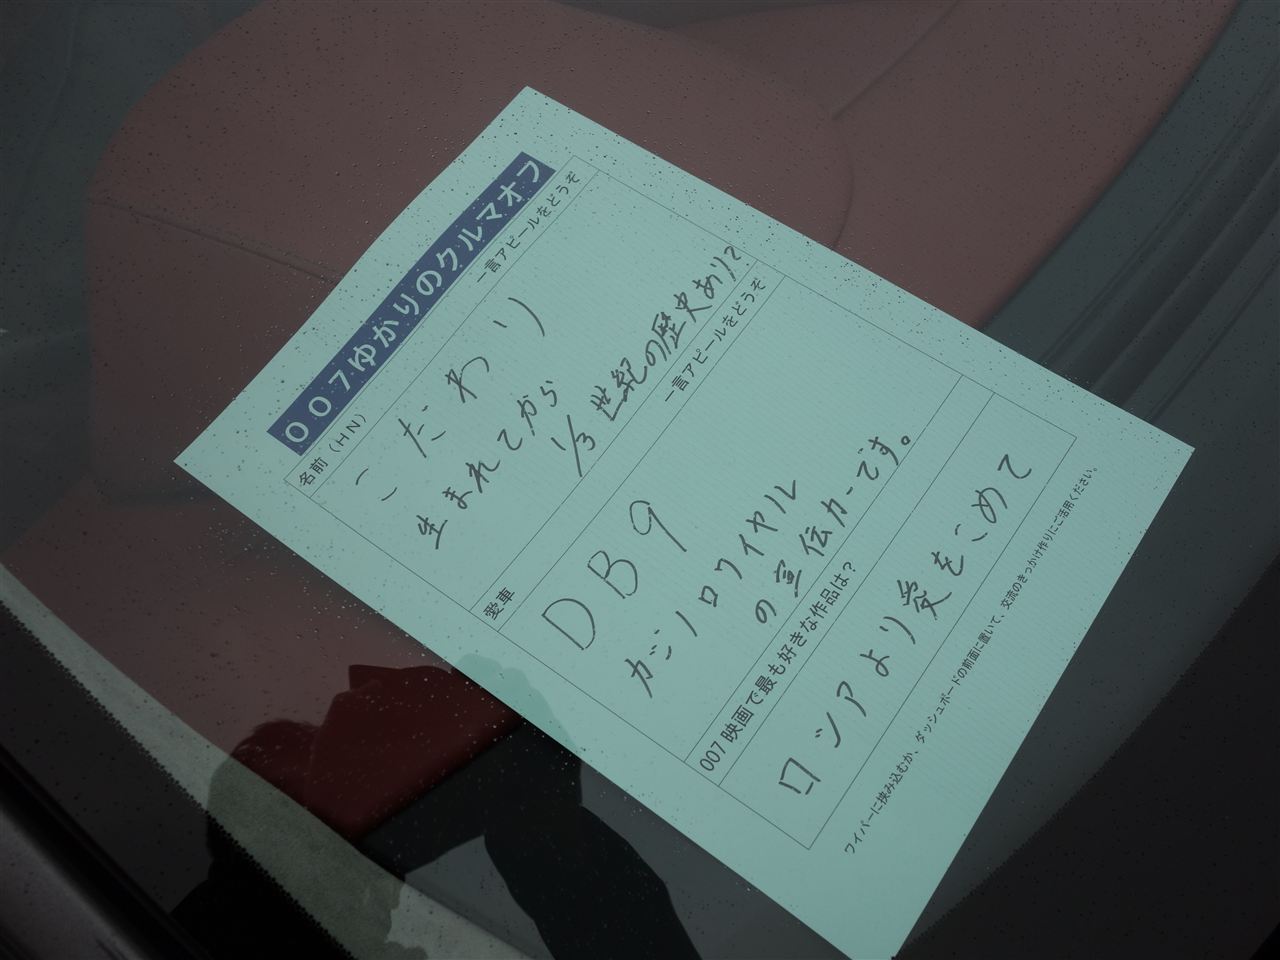 007ゆかりのクルマオフ
名前（HN）
一言アピールをどうぞ
こだわり
生まれてから
1/3世紀の歴史ありて
愛車
一言アピールをどうぞ
DB9
カジノロワイヤル
の宣伝カーです。
007映画で最も好きな作品は？
ロシアより愛をこめて
ワイパーに挟み込むか、ダッシュボードの前面に置いて、交流のきっかけ作りにご活用ください。